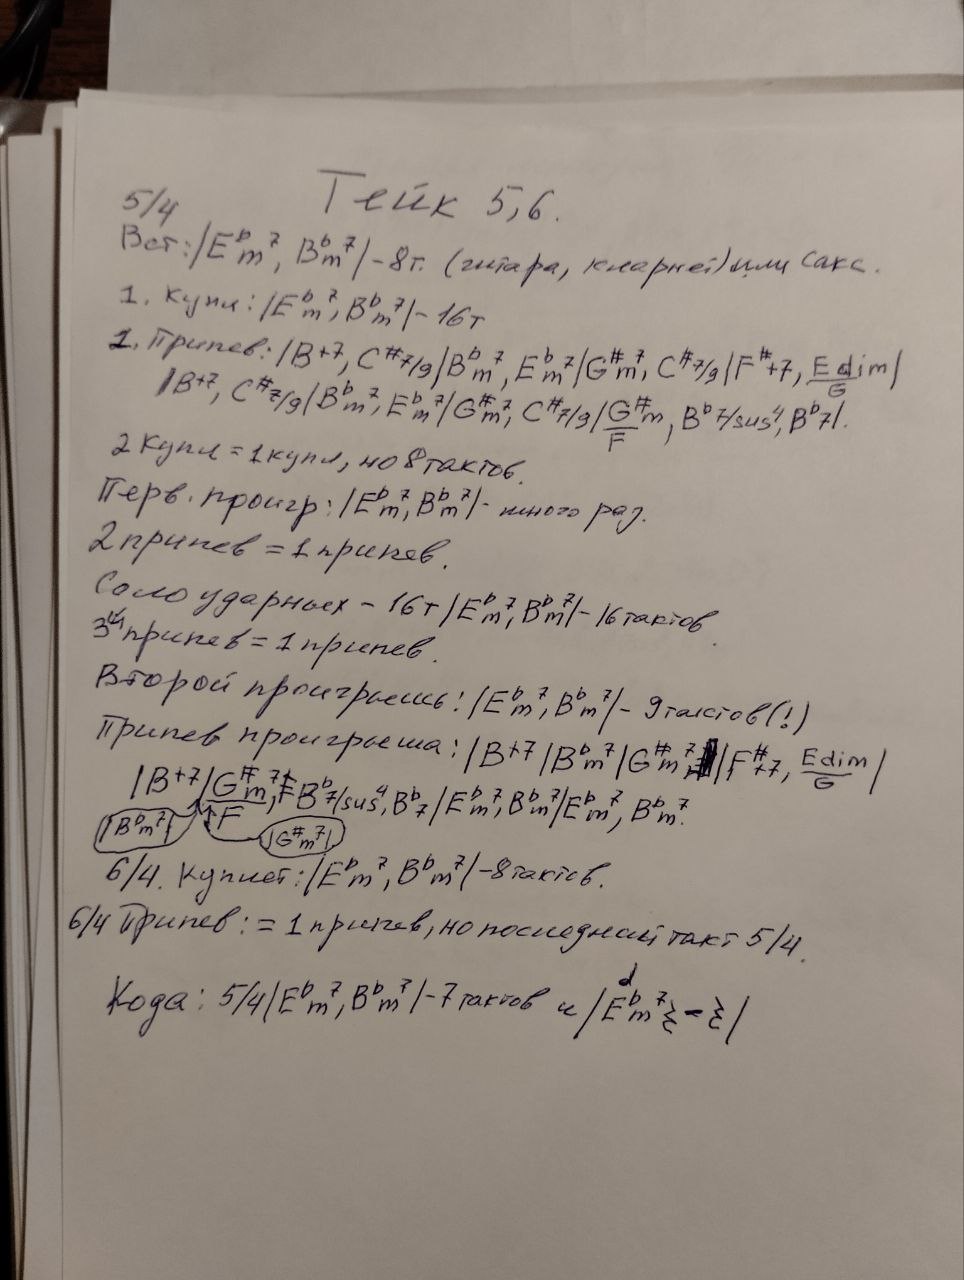 Тейк 5,6.
5/4
Вст: |E♭m7, B♭m7| - 8т. (гитара, кларнет) или сакс.
1. Купл: |E♭m7, B♭m7| - 16т
1. Припев: |B+7, C#7/9|B♭m7, E♭m7|G#m7, C#7/9|F#+7, Edim/G|
|B+7, C#7/9|B♭m7, E♭m7|G#m7, C#7/9|G#m/F, B♭7/sus4, B♭7|.
2 купл = 1 купл, но 8 тактов.
Перв. проигр: |E♭m7, B♭m7| - много раз.
2 припев = 1 припев.
Соло ударных - 16т |E♭m7, B♭m7| - 16 тактов
3ий припев = 1 припев.
Второй проигрыш: |E♭m7, B♭m7| - 9 тактов (!)
Припев проигрыша: |B+7|B♭m7|G#m7|F#+7, Edim/G|
|B+7|G#m7/F, B♭7/sus4, B♭7|E♭m7, B♭m7|E♭m7, B♭m7.
|B♭m7| |G#m7|
6/4. Куплет: |E♭m7, B♭m7| - 8 тактов.
6/4 Припев: = 1 припев, но последний такт 5/4.
Кода: 5/4 |E♭m7, B♭m7| - 7 тактов и |E♭m7 - |